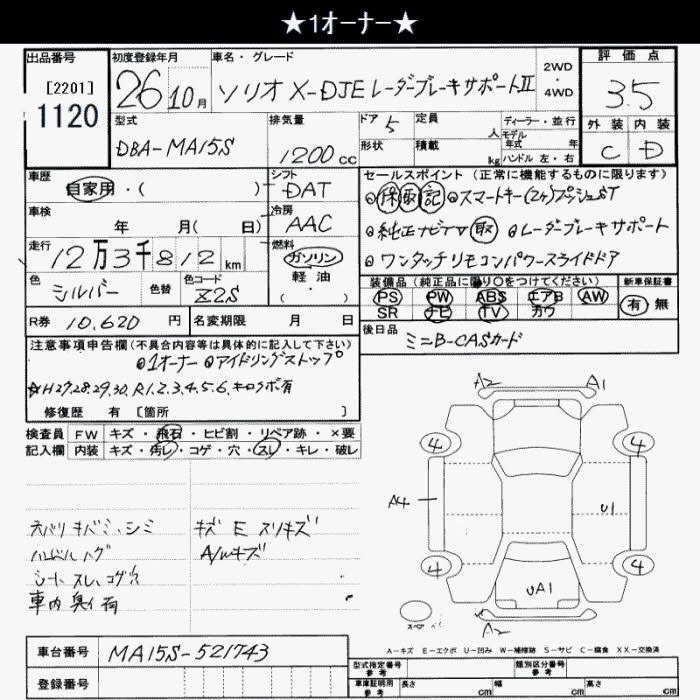 ★1オーナー★
出品番号
[2201]
1120
初度登録年月
26 10月
車名・グレード
ソリオ X-DJE レーダーブレーキサポートII
2WD
・
4WD
評価点
3.5
外装 内装
C D
型式
DBA-MA15S
排気量
1200 cc
ドア 5
定員
人
形状
積載
kg
ディーラー・並行
モデル
年式 年
ハンドル 左・右
車歴
自家用・( )
シフト
DAT
車検
年 月( 日)
冷房
AAC
走行
12万3千812km
燃料
ガソリン
軽・油
( ・ )
色
シルバー
色替
色コード
Z2S
R券 10,620 円
名変期限 月 日
セールスポイント(正常に機能するものに限ります)
◎保 取 記 ◎スマートキー(2ケ)プッシュST
◎純正ナビTV 取 ◎レーダーブレーキサポート
◎ワンタッチリモコンパワースライドドア
装備品(純正品に限り○をつけてください)
PS PW ABS エアB AW
SR ナビ TV カワ
新車保証書
有 無
後日品
ミニB-CASカード
注意事項申告欄(不具合内容等は具体的に記入して下さい)
◎1オーナー ◎アイドリングストップ
☆H27,28,29,30,R1,2,3,4,5,6,キロクボ有
修復歴 有 [箇所 ]
検査員 FW キズ・飛石・ヒビ割・リペア跡・×要
記入欄 内装 キズ・汚レ・コゲ・穴・スレ・キレ・破レ
天バリ キバミ、シミ
ハンドル ハゲ
シート スレ、コゲ穴
車内 臭イ有
キズ E スリキズ
A/Wキズ
A2 A1
4 4
A4
U1
4 4
UA1
A2
スペア
A-キズ E-エクボ U-凹み W-補修跡 S-サビ C-腐食 XX-交換済
車台番号 MA15S-521743
登録番号
型式指定番号
参考
類別区分番号
参考
車庫証明用
参考
長さ cm 幅 cm 高さ cm